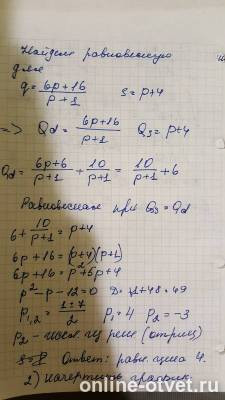 Найдем равновесную
для
q = (6p+16)/(p+1)   s = p+4
=> Qd = (6p+16)/(p+1)   Qs = p+4
Qd = (6p+6)/(p+1) + 10/(p+1) = 10/(p+1) + 6
Равновесная при Qs = Qd
6 + 10/(p+1) = p+4
6p+16 = (p+4)(p+1)
6p+16 = p²+5p+4
p²-p-12=0   D = 1+48 = 49
P₁,₂ = (1±7)/2   P₁ = 4   P₂ = -3
P₂ - (отриц)
Ответ: равн. цена 4.
2) начертить график.
online-otvet.ru